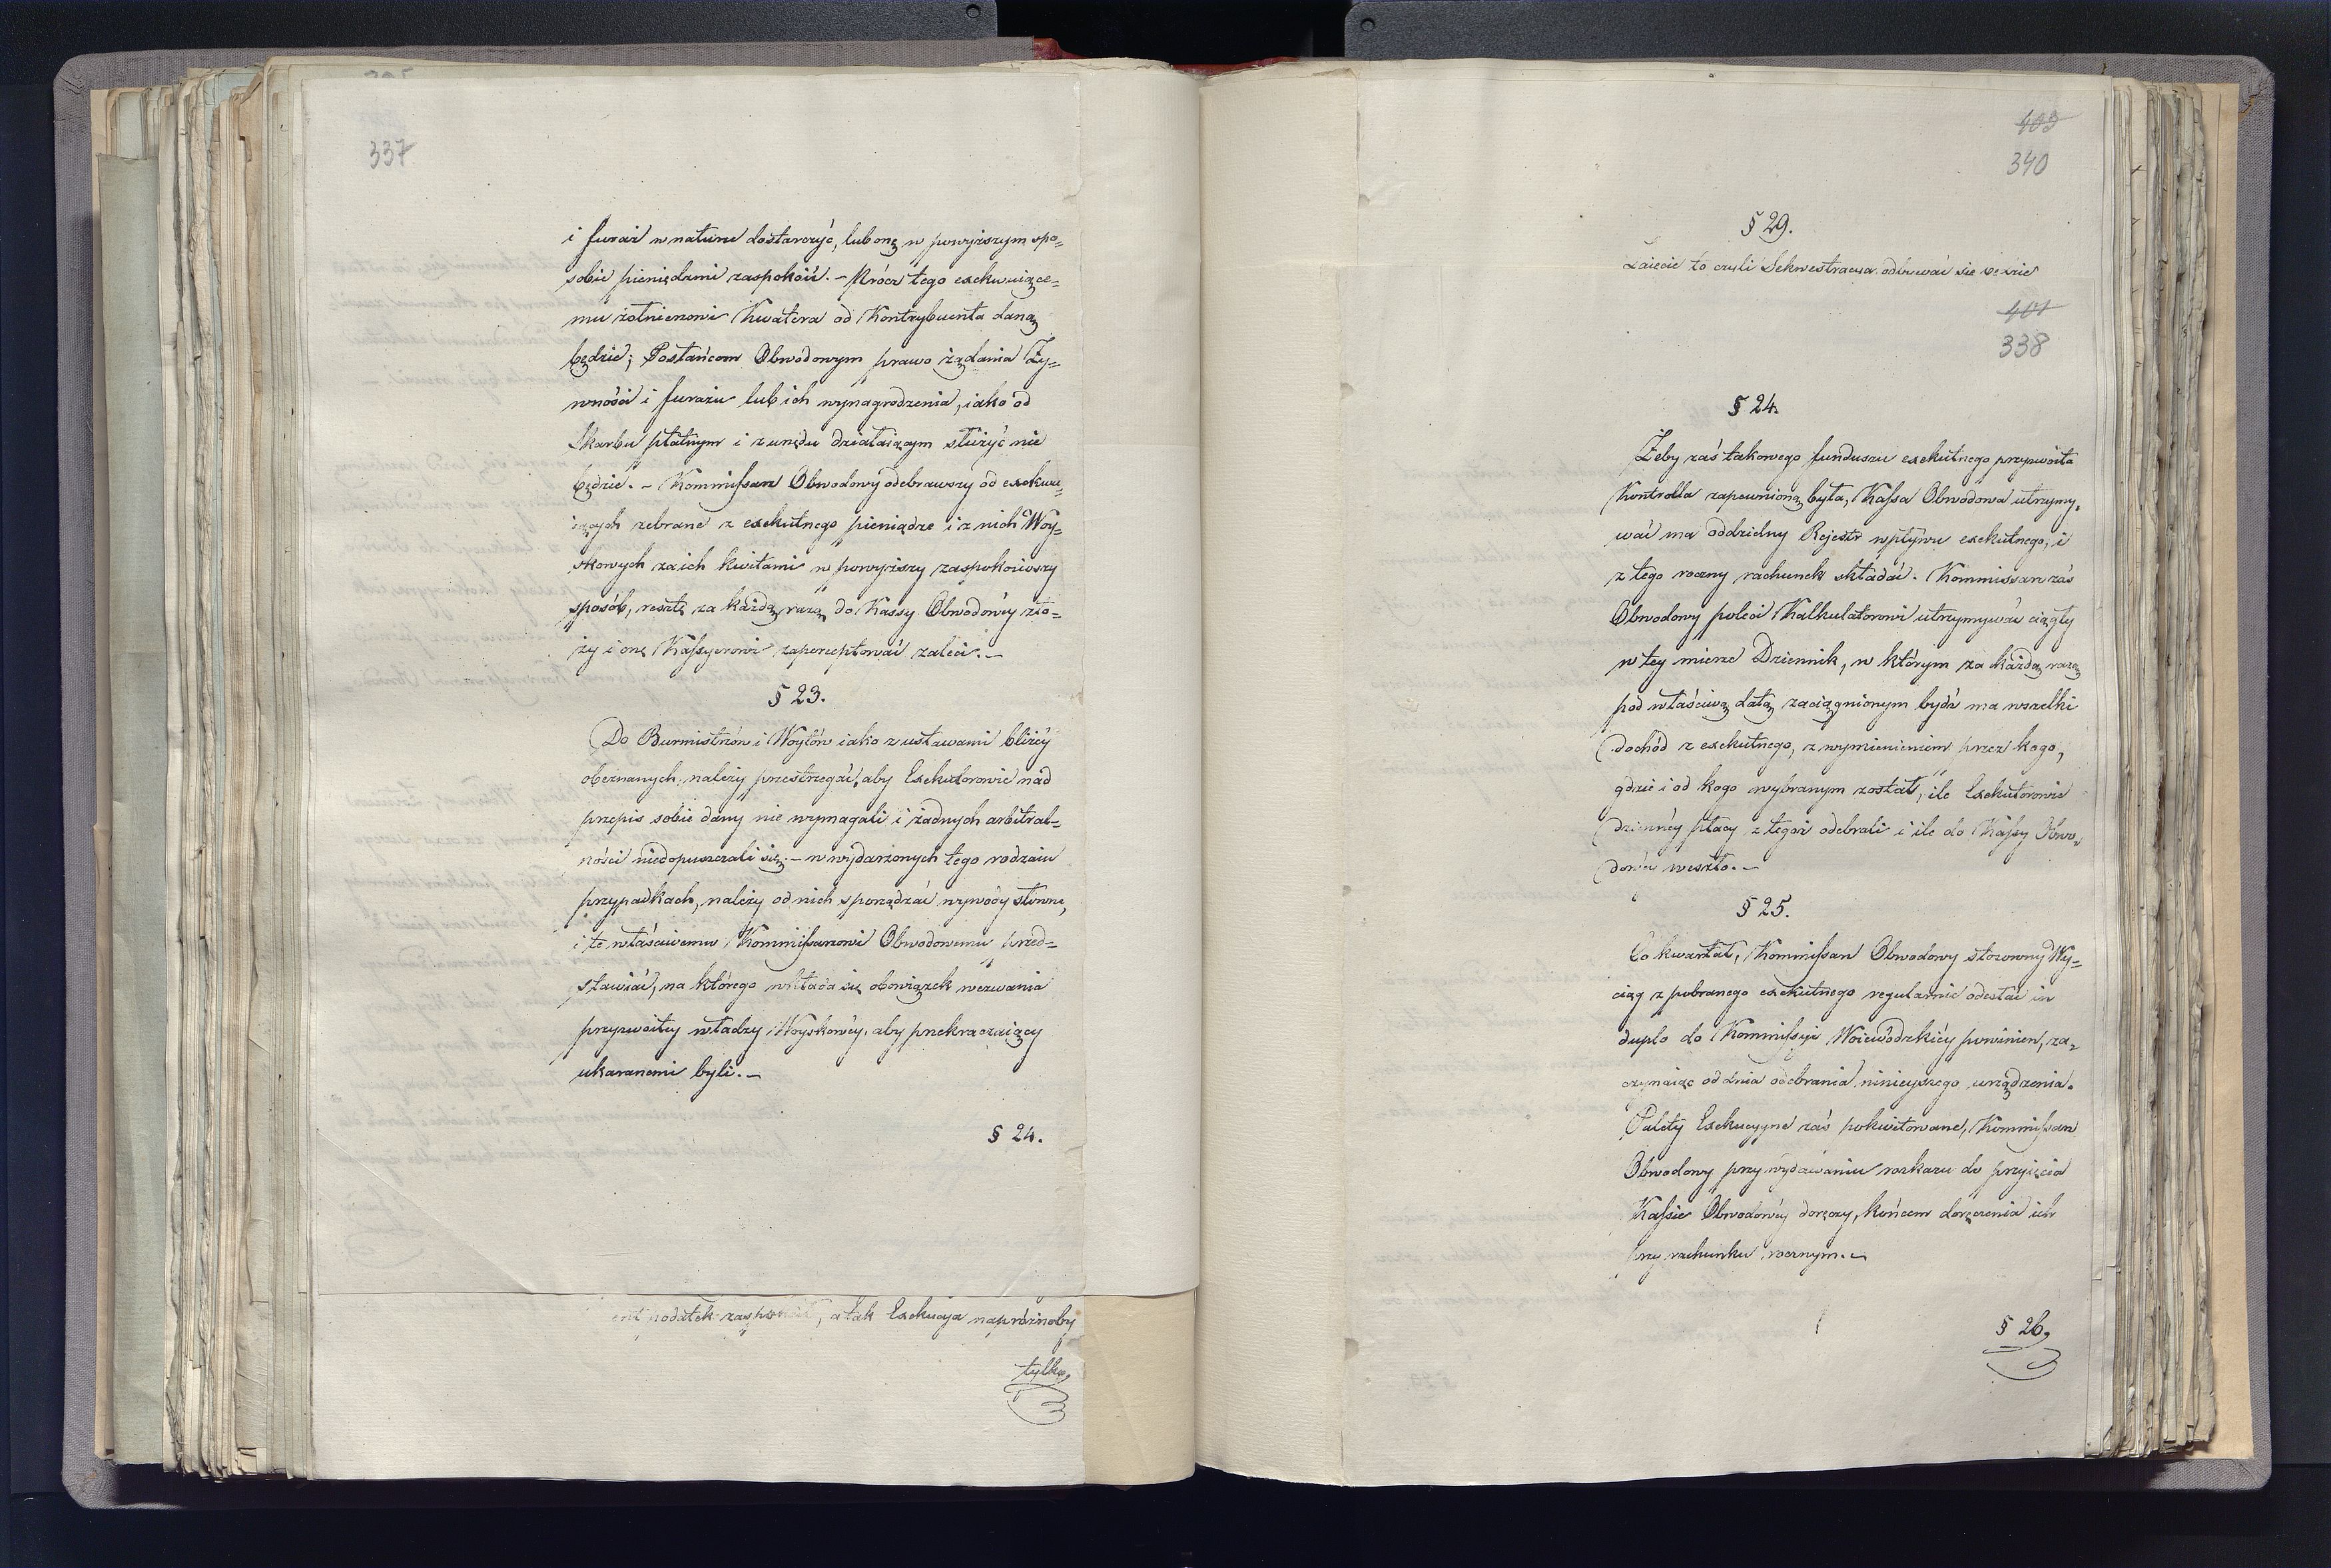 337
i furaż w naturze dostarczyć, lub onę w powyższym spo=
sobie pieniędzmi zaspokoić. – Prócz tego exekwuiące=
mu żołnierzowi Kwatera od Kontrybuenta daną
będzie; Posłańcom Obwodowym prawo żądania Ży=
wności i furażu lub ich wynagrodzenia, iako od
Skarbu płatnym i z urzędu działaiącym służyć nie
będzie. – Kommissarz Obwodowy odebrawszy od exekwu=
iących zebrane z exekutnego pieniądze i z nich Woy=
skowych za ich kwitami w powyższy zaspokoiwszy
sposób, resztę za każdą razą do Kassy Obwodowéy zło=
ży i onę Kassyerowi zaperceptować zaleci. –
§ 23.
Do Burmistrzów i Woytów iako z ustawami bliżéy
obeznanych należy przestrzegać, aby Exekutorowie nad
przepis sobie dany nie wymagali i żadnych arbitral=
ności niedopuszczali się. – w wydarzonych tego rodzaiu
przypadkach, należy od nich sporządzać wywody słowne,
i te właściwemu Kommissarzowi Obwodowemu przed=
stawiać, na którego wkłada się obowiązek wezwania
przyzwoitey władzy Woyskowéy, aby przekraczaiący
ukaranemi byli. –
§ 24.
podatek, a tak Exekucya napróżnoby
tylko
403
340
§ 29.
Zaięcie to czyli Sekwestracya odbywać się będzie
401
338
§ 24.
Żeby zaś takowego funduszu exekutnego przyzwoita
Kontrolla zapewnioną była, Kassa Obwodowa utrzymy=
wać ma oddzielny Rejestr wpływu exekutnego, i
z tego roczny rachunek składać. Kommissarz zaś
Obwodowy poleci Kalkulatorowi utrzymywać ciągły
w tey mierze Dziennik, w którym za każdą razą
pod właściwą datą zaciągnionym bydź ma wszelki
dochód z exekutnego, z wymienieniem przez kogo,
gdzie i od kogo wybranym został, ile Exekutorowie
dziennéy płacy z tegoż odebrali i ile do Kassy Obwo=
dowéy weszło. –
§ 25.
Co kwartał, Kommissarz Obwodowy stosowny Wy=
ciąg z pobranego exekutnego regularnie odesłać in
duplo do Kommissyi Woiewódzkiéy powinien, za=
czynaiąc od dnia odebrania ninieyszego urządzenia.
Palety Exekucyyne zaś pokwitowane, Kommissarz
Obwodowy przy wydawaniu rozkazu do przyięcia
Kassie Obwodowéy doręczy, końcem dołączenia ich
przy rachunku rocznym. –
§ 26.